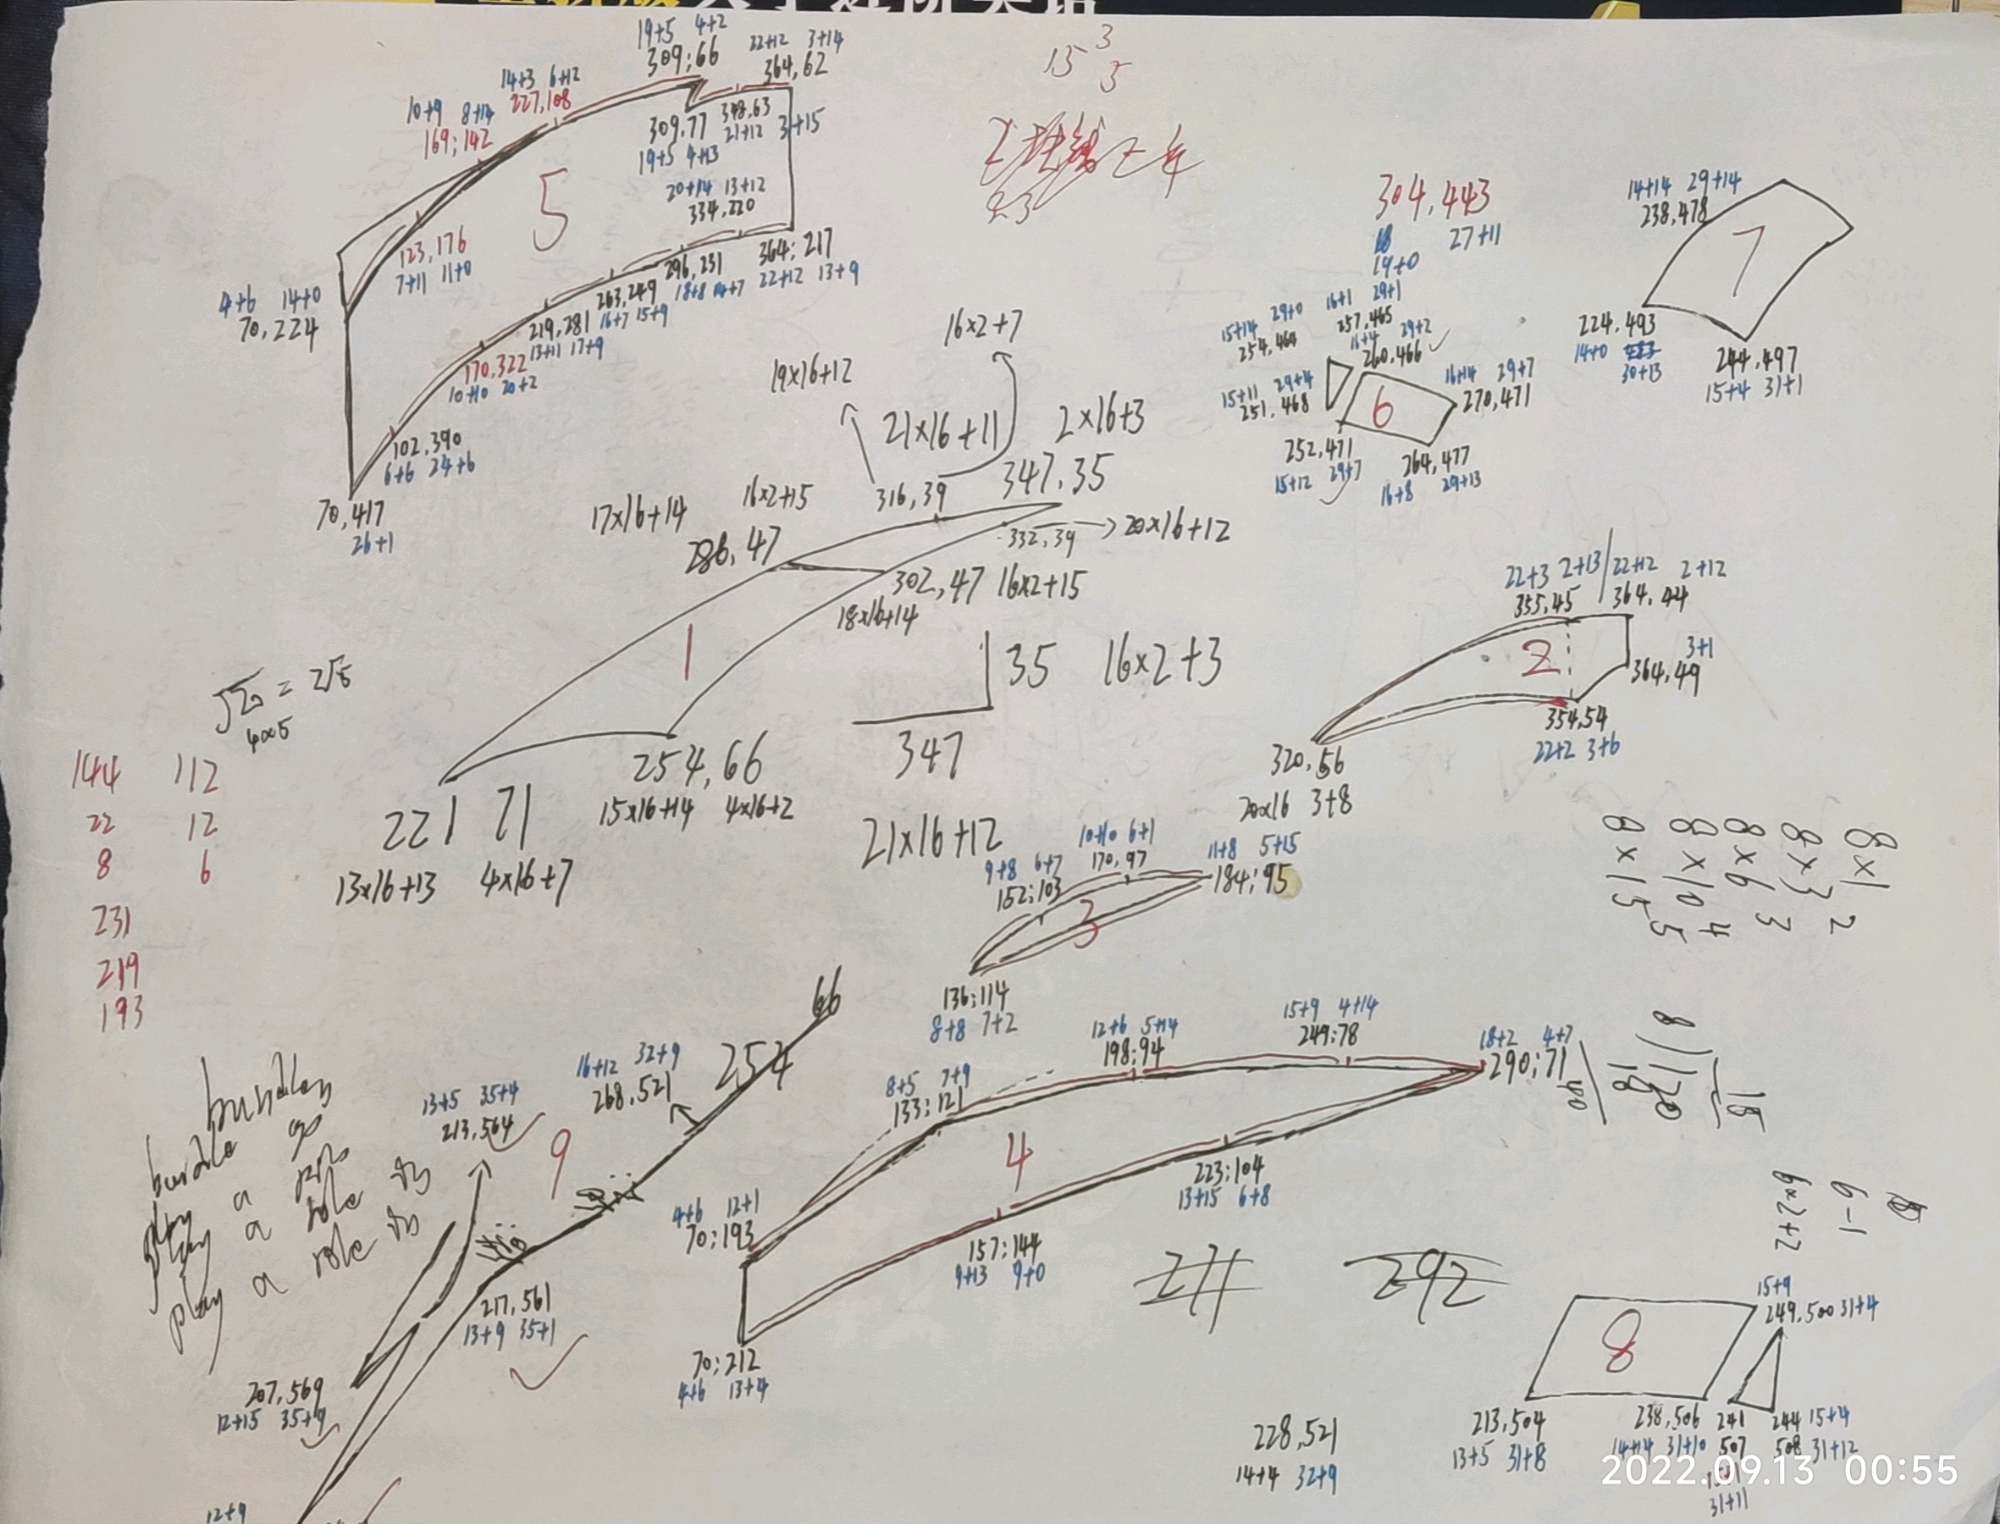 19+5 4+2
309;66
22+12 3+14
364,62
14+3 6+12
227,108
10+9 8+14
169;142
309,77
19+5 4+13
348,63
21+12 3+15
5
20+14 13+12
334,220
123,176
7+11 11+0
4+6 14+0
70,224
296,231
18+8 14+7
364;217
22+12 13+9
263,249
16+7 15+9
219,281
13+11 17+9
170,322
10+10 20+2
102,390
6+6 24+6
70,417
26+1
15 3
5
304,443
27+11
19+0
15+14 29+0
254,464
16+1 29+1
257,465
16+4 29+2
260,466
15+11 29+4
251,468
6
16+14 29+7
270,471
252,471
15+12 29+7
264,477
16+8 29+13
14+14 29+14
238,478
7
224,493
14+0
30+13
244,497
15+4 31+1
16×2+7
19×16+12
21×16+11
2×16+3
347,35
316,39
17×16+14
16×2+15
286,47
332,39
20×16+12
302,47 16×2+15
18×16+14
1
35 16×2+3
347
21×16+12
254,66
15×16+14 4×16+2
221 71
13×16+13 4×16+7
√20 = 2√5
4×5
144 112
22 12
8 6
231
219
193
22+3 2+13
355,45
22+12 2+12
364,44
2
3+1
364,49
354,54
22+2 3+6
320,56
20×16 3+8
8×1 2
8×3 3
8×6 4
8×10 5
8×15
10+10 6+1
170,97
9+8 6+7
152;103
11+8 5+15
184;95
3
136;114
8+8 7+2
15+9 4+14
249;78
12+6 5+14
198;94
18+2 4+7
290;71
8+5 7+9
133;121
4
223;104
13+15 6+8
4+6 12+1
70;193
157;144
9+13 9+0
70;212
4+6 13+4
271 292
15
8)120
40
6-1
6×2+2
66
254
16+12 32+9
268,521
13+5 35+4
213,564
9
217,561
13+9 35+1
207,569
12+15 35+9
12+9
bundle
play a role
play a role in
228,521
14+4 32+9
8
15+9
249,500 31+4
213,504
13+5 31+8
238,506
14+14 31+10
241
507
31+11
244 15+4
508 31+12
2022.09.13 00:55